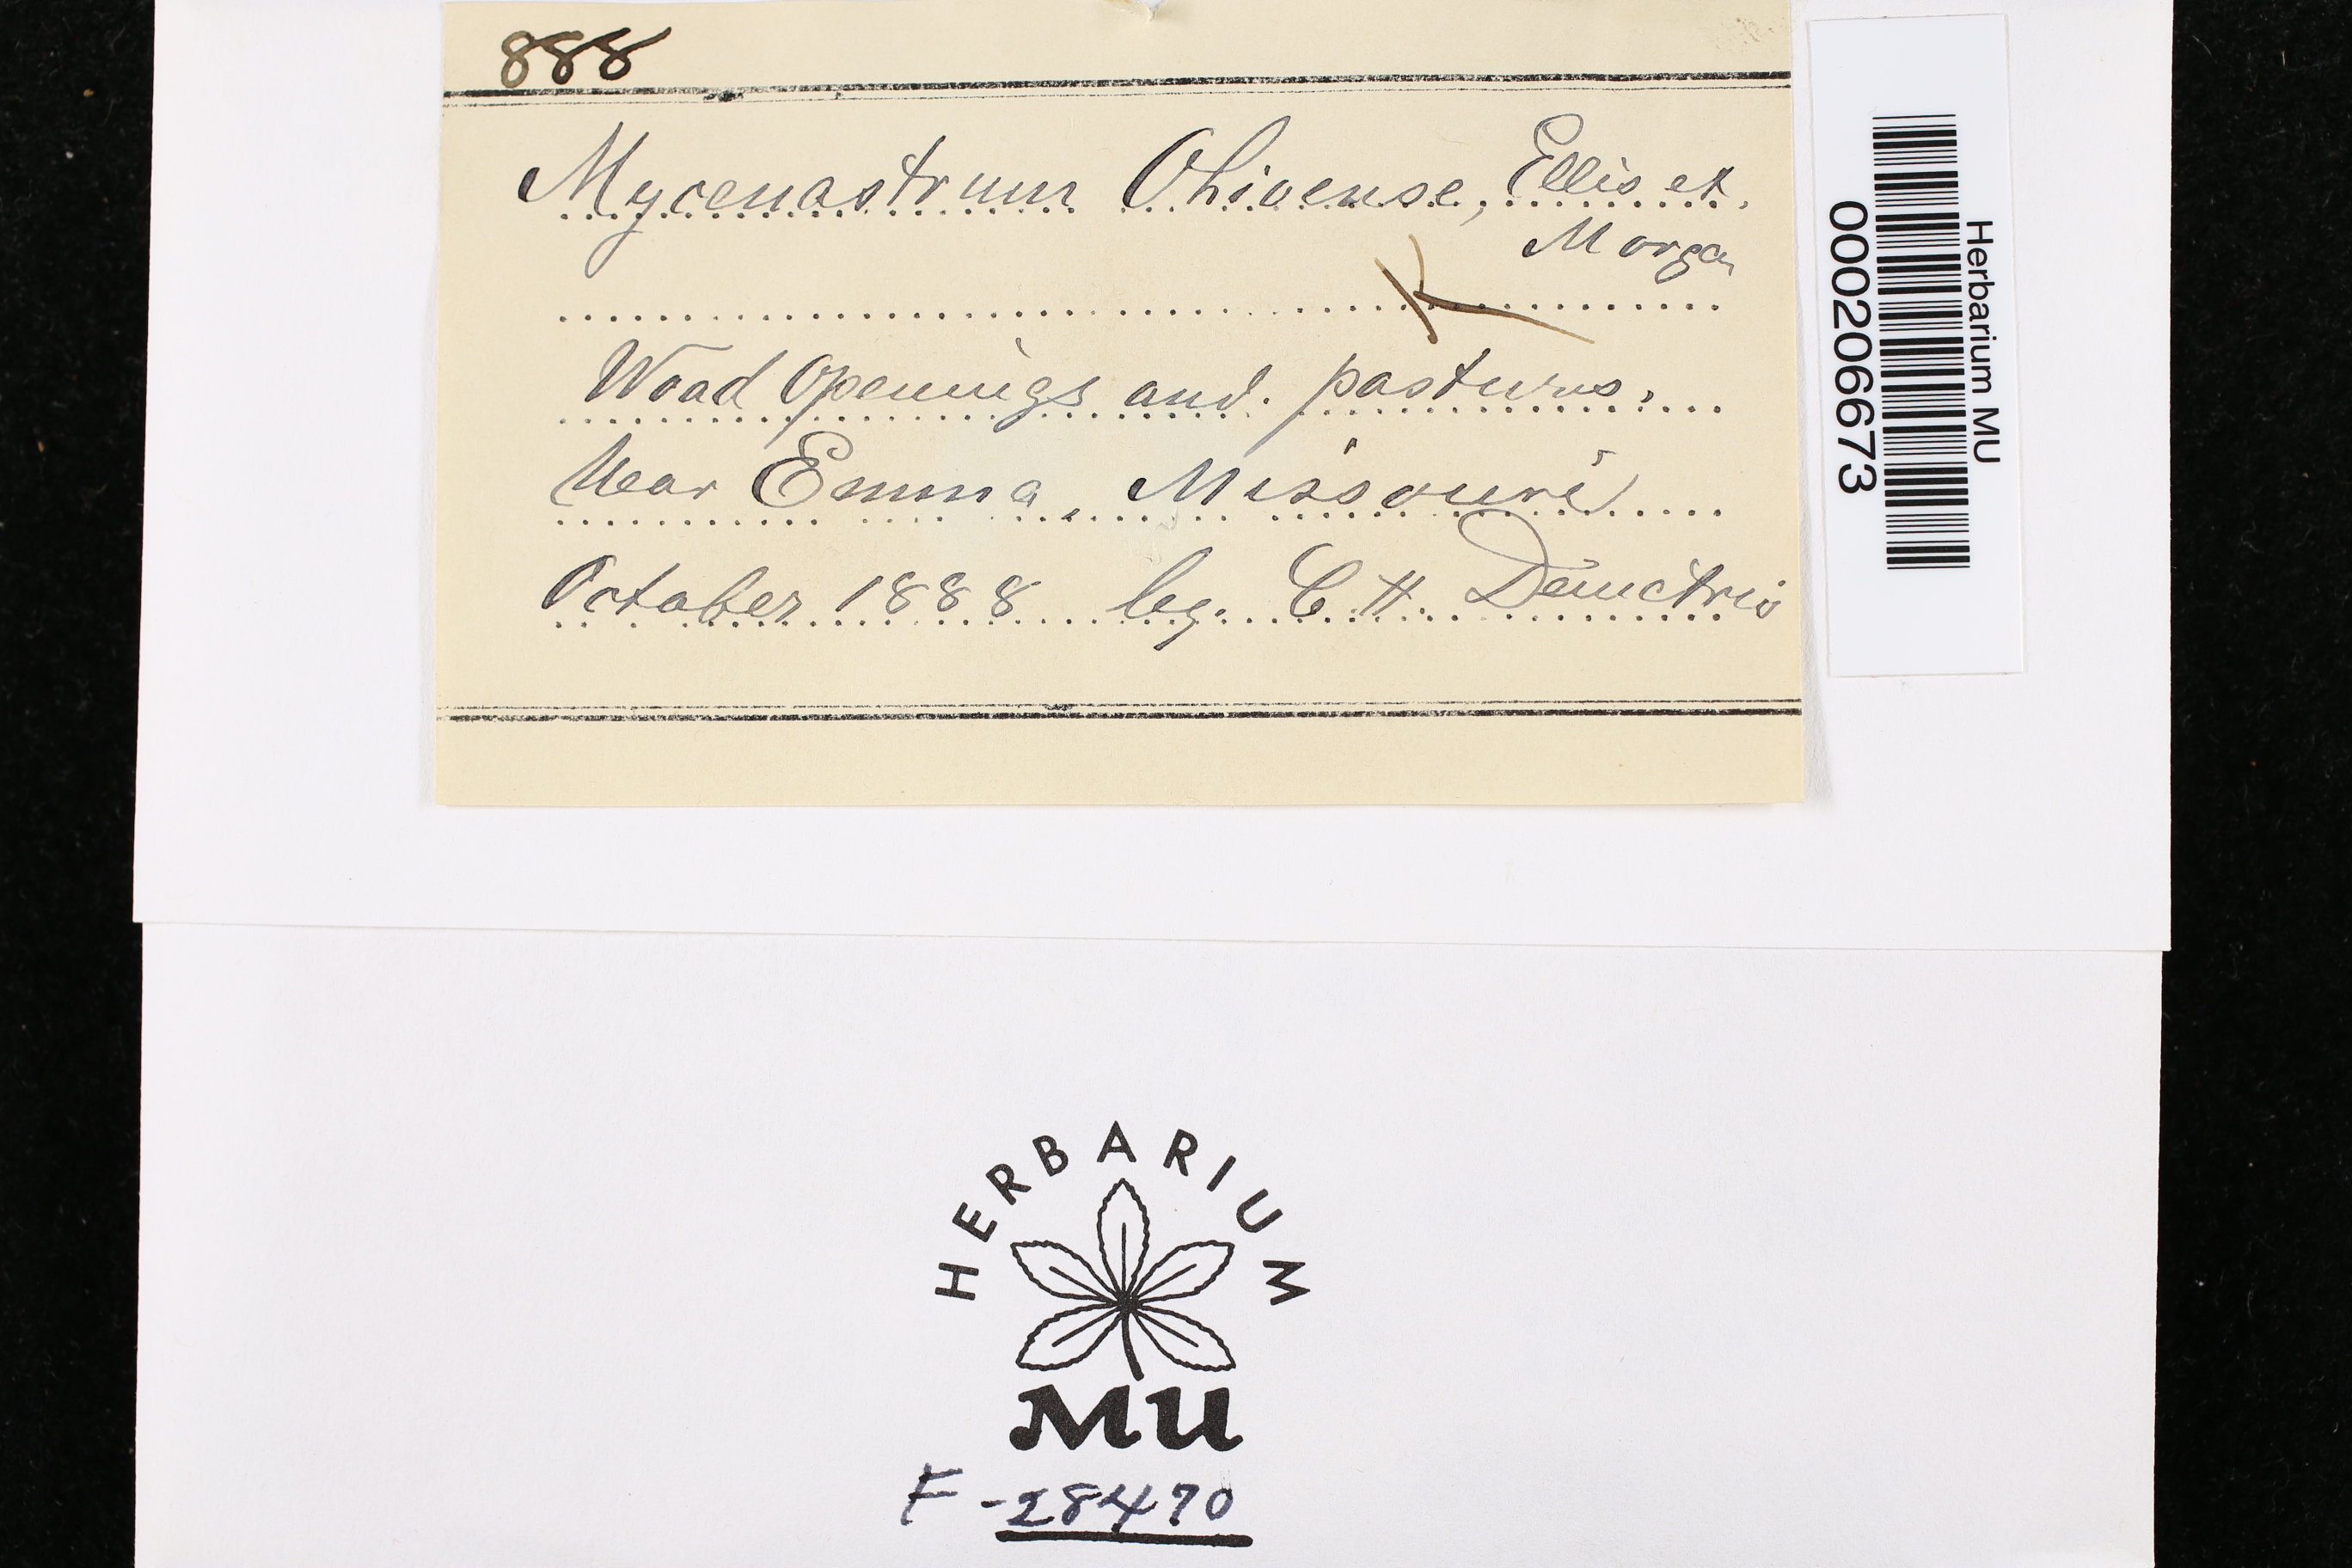 888
Mycenastrum Ohioense, Ellis et.
Morgan
Wood Openings and pastures,
Near Emma, Missouri
October 1888 leg. C H. Demetrio
Herbarium MU
000206673
HERBARIUM
MU
F-28470